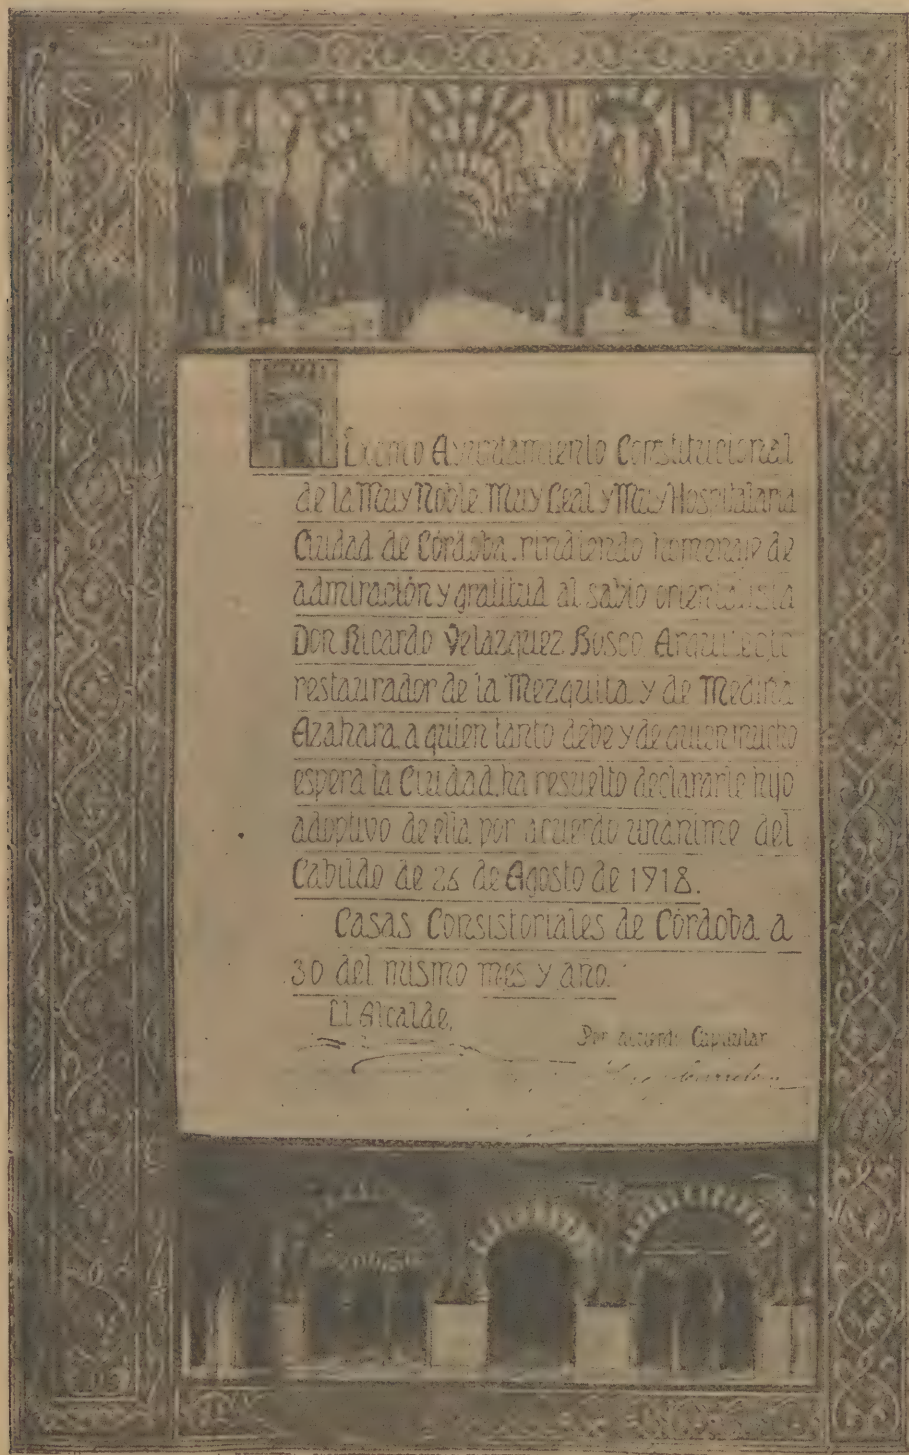 El Excmo Ayuntamiento Constitucional
de la Muy Noble, Muy Leal y Muy Hospitalaria
Ciudad de Córdoba, rindiendo homenaje de
admiración y gratitud al sabio orientalista
Don Ricardo Velazquez Bosco, Arquitecto
restaurador de la Mezquita y de Medina
Azahara, a quien tanto debe y de quien mucho
espera la Ciudad, ha resuelto declararle hijo
adoptivo de ella, por acuerdo unánime del
Cabildo de 26 de Agosto de 1918.
Casas Consistoriales de Córdoba a
30 del mismo mes y año.
El Alcalde,
Por acuerdo Capitular